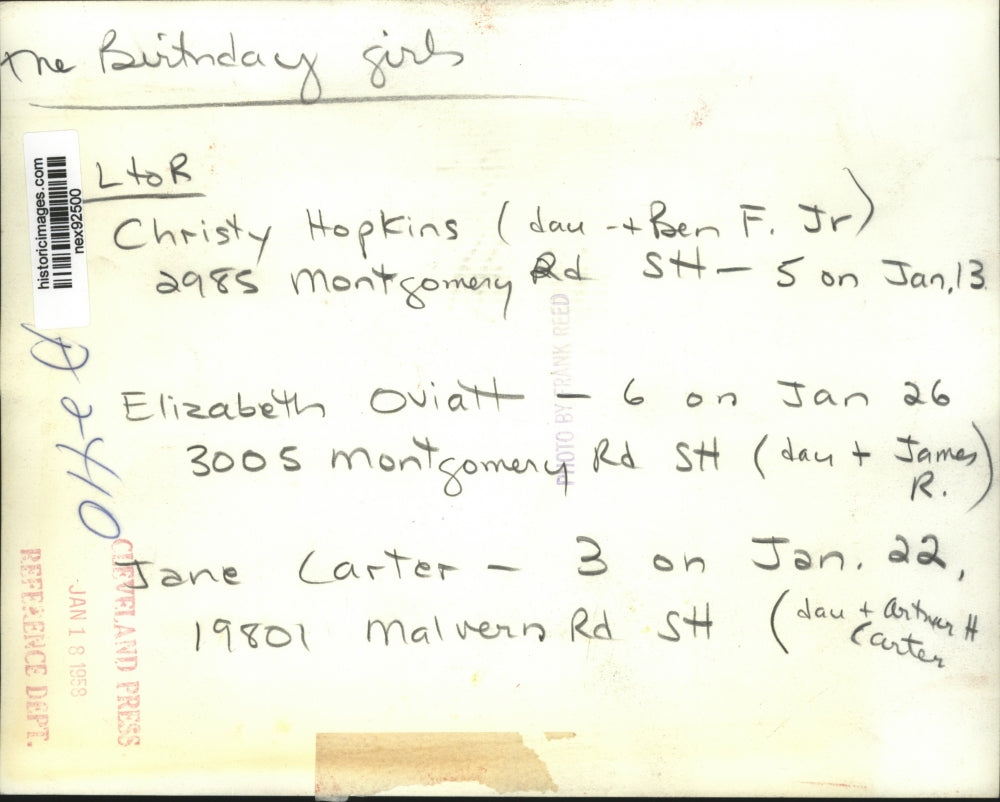 the Birthday girls
L to R
Christy Hopkins (dau -+ Ben F. Jr)
2985 Montgomery Rd SH - 5 on Jan, 13
Elizabeth Oviatt - 6 on Jan 26
3005 Montgomery Rd SH (dau + James
R.)
Jane Carter - 3 on Jan. 22,
19801 Malvern Rd SH (dau + Arthur H
Carter
historicimages.com
nex92500
PHOTO BY FRANK REED
CLEVELAND PRESS
JAN 18 1958
REFERENCE DEPT.